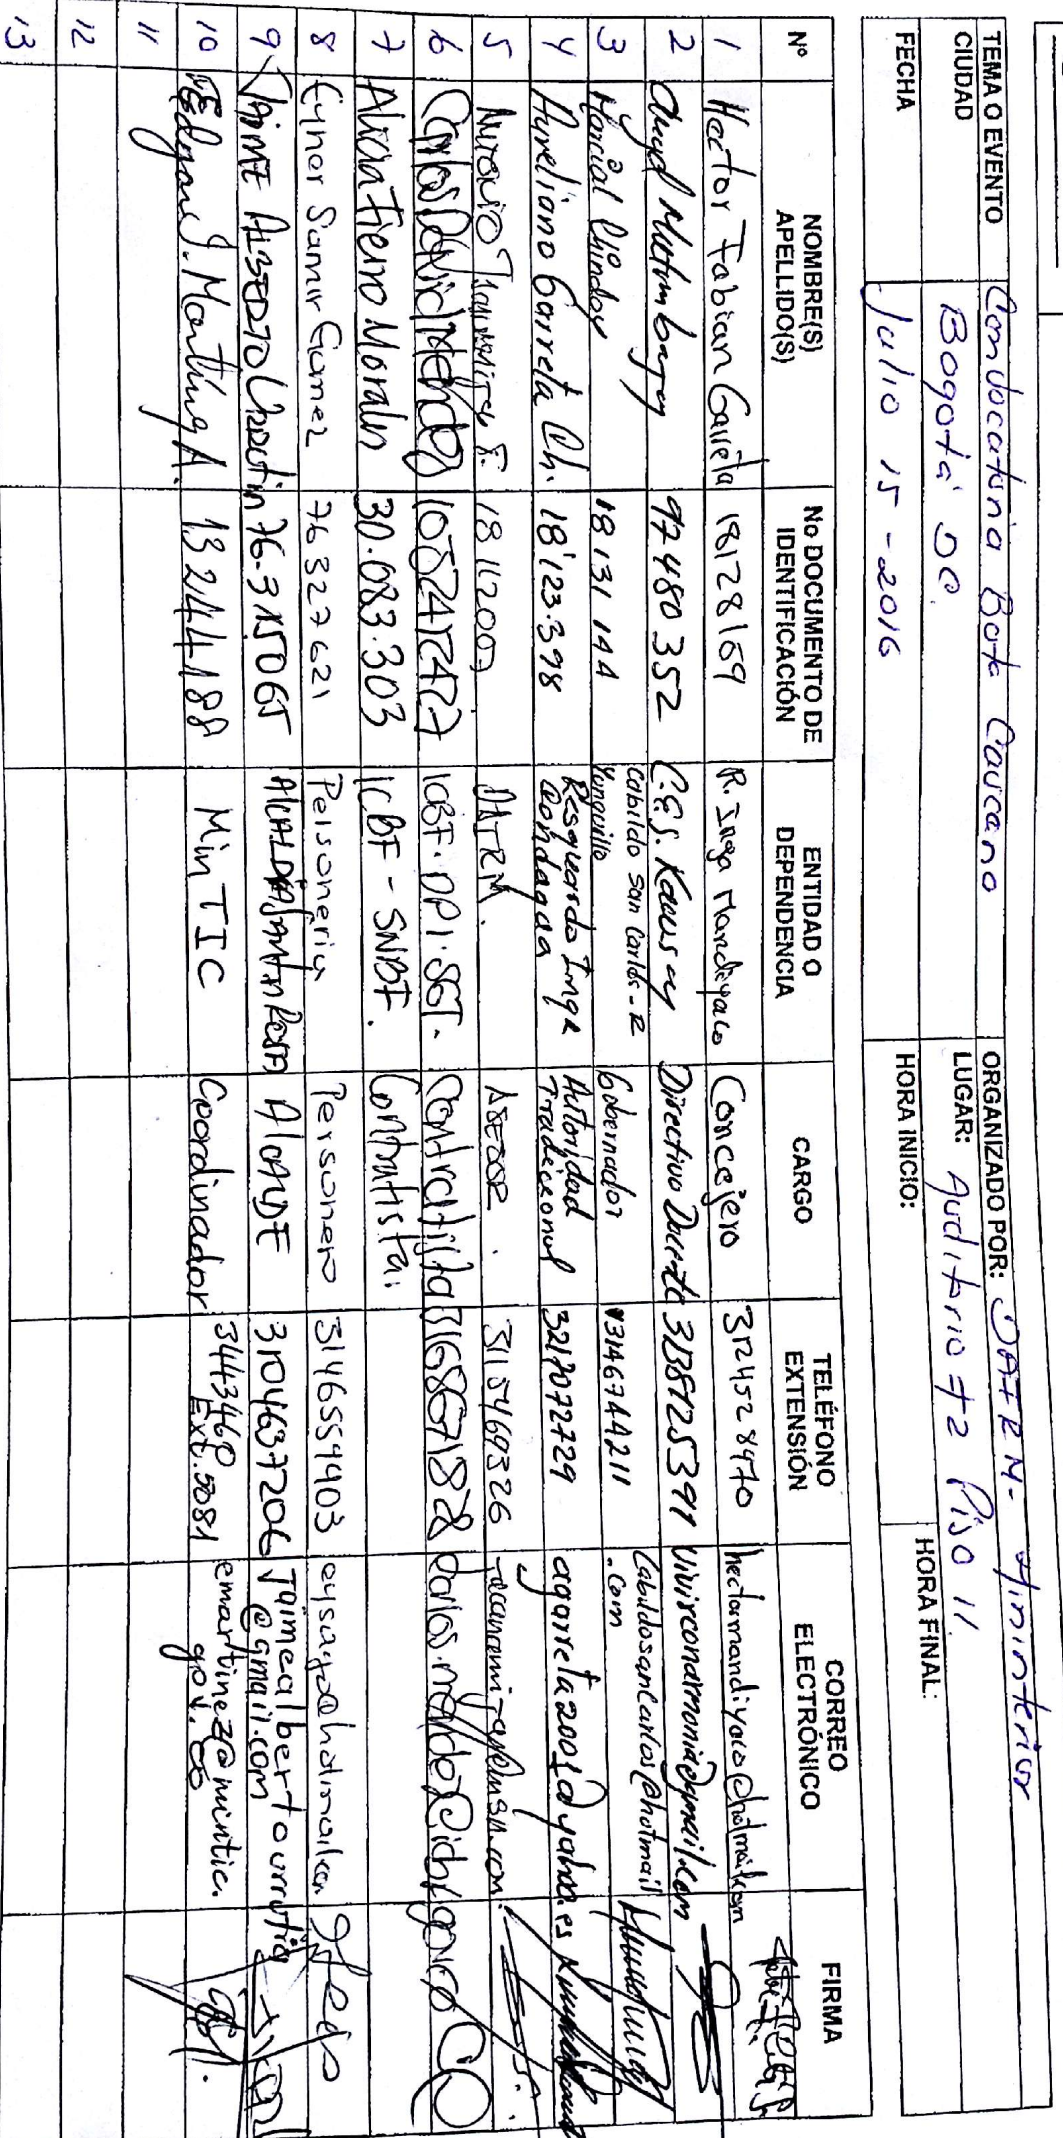 TEMA O EVENTO Convocatoria Bota Caucana ORGANIZADO POR: DATRM - Mininterior
CIUDAD Bogotá DC. LUGAR: Auditorio #2 Piso 11
FECHA Julio 15 - 2016 HORA INICIO: HORA FINAL:
Nº NOMBRE(S) APELLIDO(S) No DOCUMENTO DE IDENTIFICACIÓN ENTIDAD O DEPENDENCIA CARGO TELÉFONO EXTENSIÓN CORREO ELECTRÓNICO FIRMA
1 Hector Fabian Garreta 18128169 R. Inga Mandiyaco Concejero 3124528970 hectormandiyaco@hotmail.com
2 97480352 Directivo Docente vivirconarmonia@gmail.com
3 Marcial Chindoy 18131144 Cabildo San Carlos - R Yunguillo Gobernador 3146744211 Cabildosancarlos@hotmail.com
4 Aureliano Garreta Ch. 18'123.398 Resguardo Inga Autoridad Tradicional 3217072729 agarreta2001@yahoo.es
5 18112007 DATRM. ASESOR. 3115469326
6 Carlos David Mendez ICBF. DPI. SGT. Contratista 3168671828
7 Morales 30.083.303 ICBF - SNBF. Contratista.
8 Eyner Samir Gomez 76327621 Personeria Personero 3146559903
9 JAIME ALBERTO 76.315065 ALCALDIA SANTA ROSA ALCALDE 3104637206 Jaimealbertourrutia@gmail.com
10 Edgard J. Martinez A. 13244188 Min TIC Coordinador 3443460 Ext. 5081 emartinez@mintic.gov.co
11
12
13